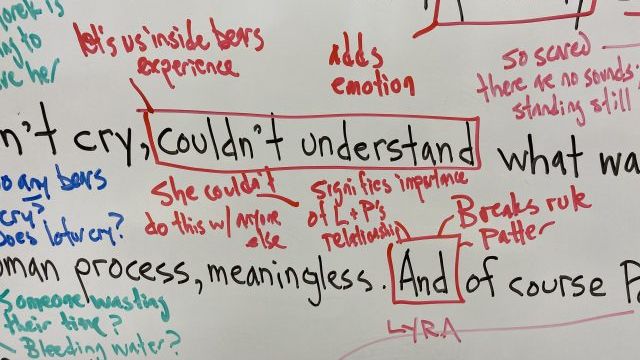 orek is
ng to
ve her
let's us inside bears
experience
adds
emotion
So scared
there are no sounds,
standing still
n't cry, couldn't understand what wa
o any bears
cry?
Does Lofur cry?
She couldn't
do this w/ anyone
else
signifies importance
of L + P's
relationship
Breaks rule
Patter
uman process, meaningless. And of course P
Someone wasting
their time?
Bleeding water?
LYRA